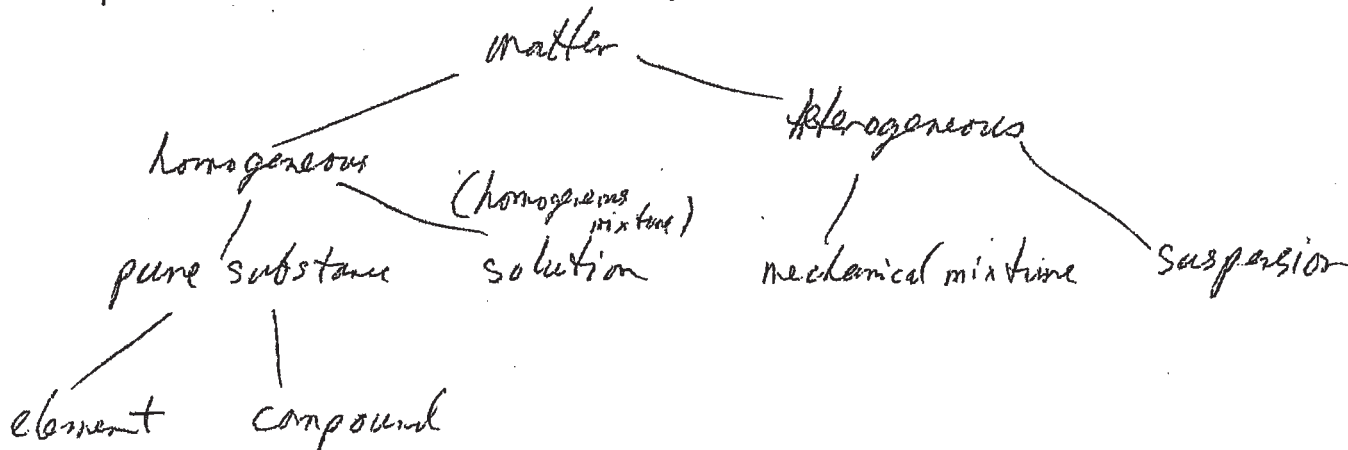 matter
Heterogeneous
homogeneous
(homogeneous
mixture)
pure substance solution mechanical mixture suspension
element compound